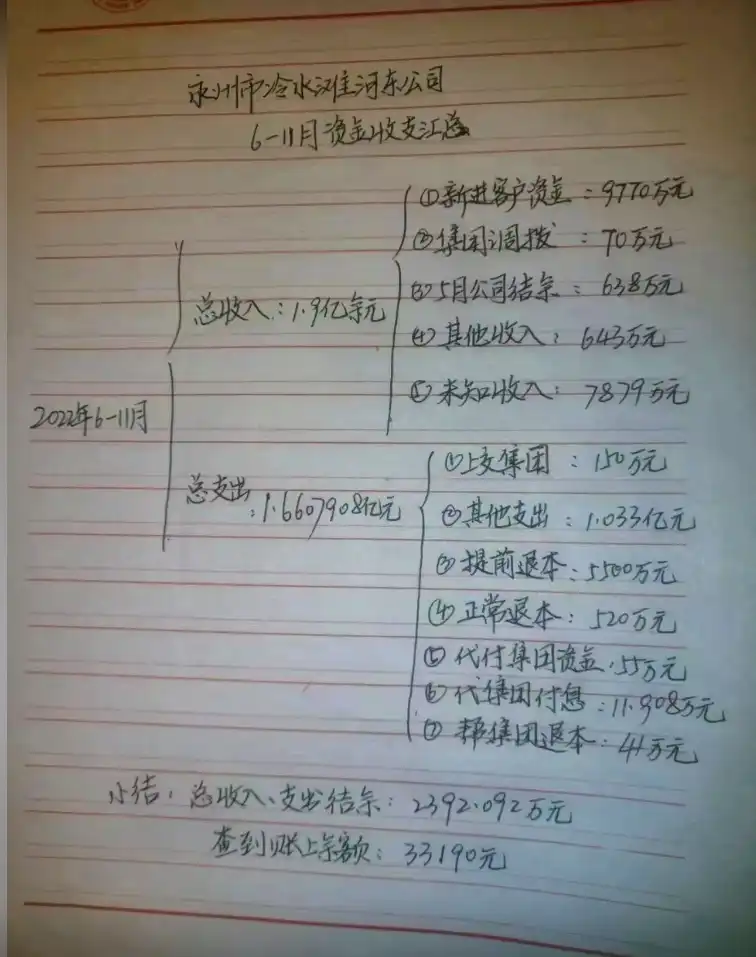 永州市冷水滩河东公司
6-11月资金收支汇总
2022年6-11月
总收入:1.9亿余元
①新进客户资金:9770万元
②集团调拨:70万元
③5月公司结余:638万元
④其他收入:643万元
⑤未知收入:7879万元
总支出:1.6607908亿元
①上交集团:150万元
②其他支出:1.033亿元
③提前退本:5500万元
④正常退本:520万元
⑤代付集团资金:55万元
⑥代集团付息:11.908万元
⑦帮集团退本:41万元
小结:总收入、支出结余:2392.092万元
查到账上余额:33190元